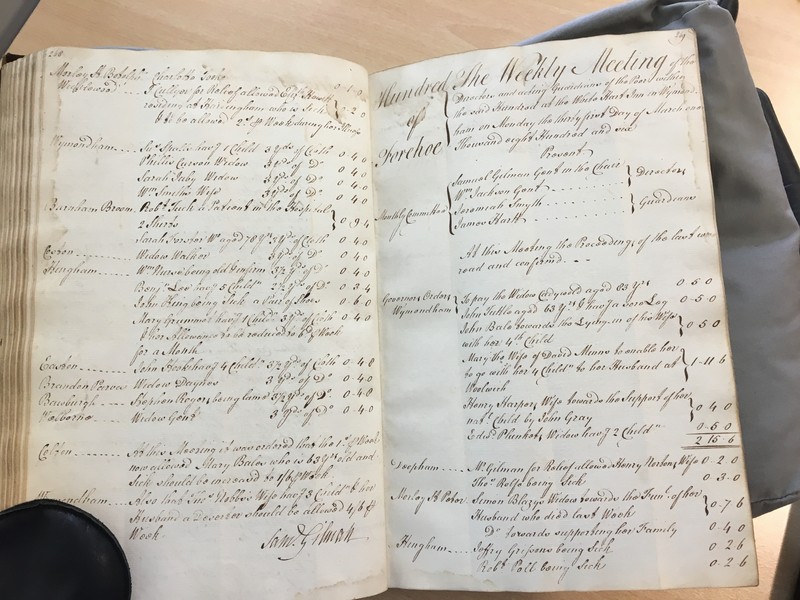 240
Morley St Botolph Charlotte Cooke 0-1-0
Wicklewood
Cullyer for Relief allowed
residing at Hardingham who is Sick 0-2-0
& to be allowed 2s. p Week during her Illness
Wymondham having 1 Child 3 yds of Cloth 0-4-0
Phillis Curson Widow 3 yds of Do 0-4-0
Sarah Juby Widow 3 yds of Do 0-4-0
Wm Smiths Wife 3 yds of Do 0-4-0
Barnham Broom Robt Tuck a Patient in the Hospital
2 Shirts 0-9-4
Sarah Forster Wo aged 78 Ys 3 yds of Cloth 0-4-0
Widow Walker 3 yds of Do 0-4-0
Hingham Wm Nurse being old & infirm 3½ yds of Do 0-4-0
Benjn Lee havg 5 Childn 2½ yds of Do 0-3-4
John King being Sick a Pair of Shoes 0-6-0
Mary Grummet havg 1 Child 3 yds of Cloth 0-4-0
& her Allowance to be reduced to p Week
for a Month
Easton John Beck havg 4 Childn 3½ yds of Cloth 0-4-8
Brandon Parva Widow Daynes 3 yds of Do 0-4-0
Bawburgh Stephen Roger being lame 3½ yds of Do 0-4-8
Welborne Widow Gent 3 yds of Do 0-4-0
Colton At this Meeting it was ordered that the 1s. p Week
now allowed Mary Bales who is 63 Yrs old and
Sick should be increased to 1/6 p Week
Wymondham Also that Thos Nobles Wife havg 3 Childn & her
Husband a Deserter should be allowed 4/6 p
Week
Saml Gilman
241
Hundred of Forehoe
The Weekly Meeting of the
Director and acting Guardians of the Poor within
the said Hundred at the White Hart Inn in Wymond-
ham on Monday the thirty first Day of March one
Thousand eight Hundred and six
Present
Samuel Gilman Gent in the Chair
Wm Jackson Gent Directors
Monthly Committee
Jeremiah Smyth
James Hart Guardians
At this Meeting the Proceedings of the last were
read and confirmed
Governors Orders
Wymondham
To pay the Widow aged 83 Yrs 0-5-0
John Tickle aged 63 Yrs & havg a sore Leg 0-5-0
John Bale towards the Lying in of his Wife
with her 4th Child 0-5-0
Mary the Wife of David Munns to enable her
to go with her 4 Childn to her Husband at
Woolwich 1-11-6
Henry Harpers Wife towards the Support of her
natl Child by John Gray 0-4-0
Plunkett Widow havg 2 Childn 0-5-0
2 15-6
Deopham Mr Gilman for Relief allowd Henry Nortons Wife 0-2-0
Thos Rolfe being Sick 0-3-0
Morley St Peter Simon Blazys Widow towards the Funl of her
Husband who died last Week 0-7-6
Do towards supporting her Family 0-4-0
Hingham Jeffry Gressons being Sick 0-2-6
Robt Poll being Sick 0-2-6